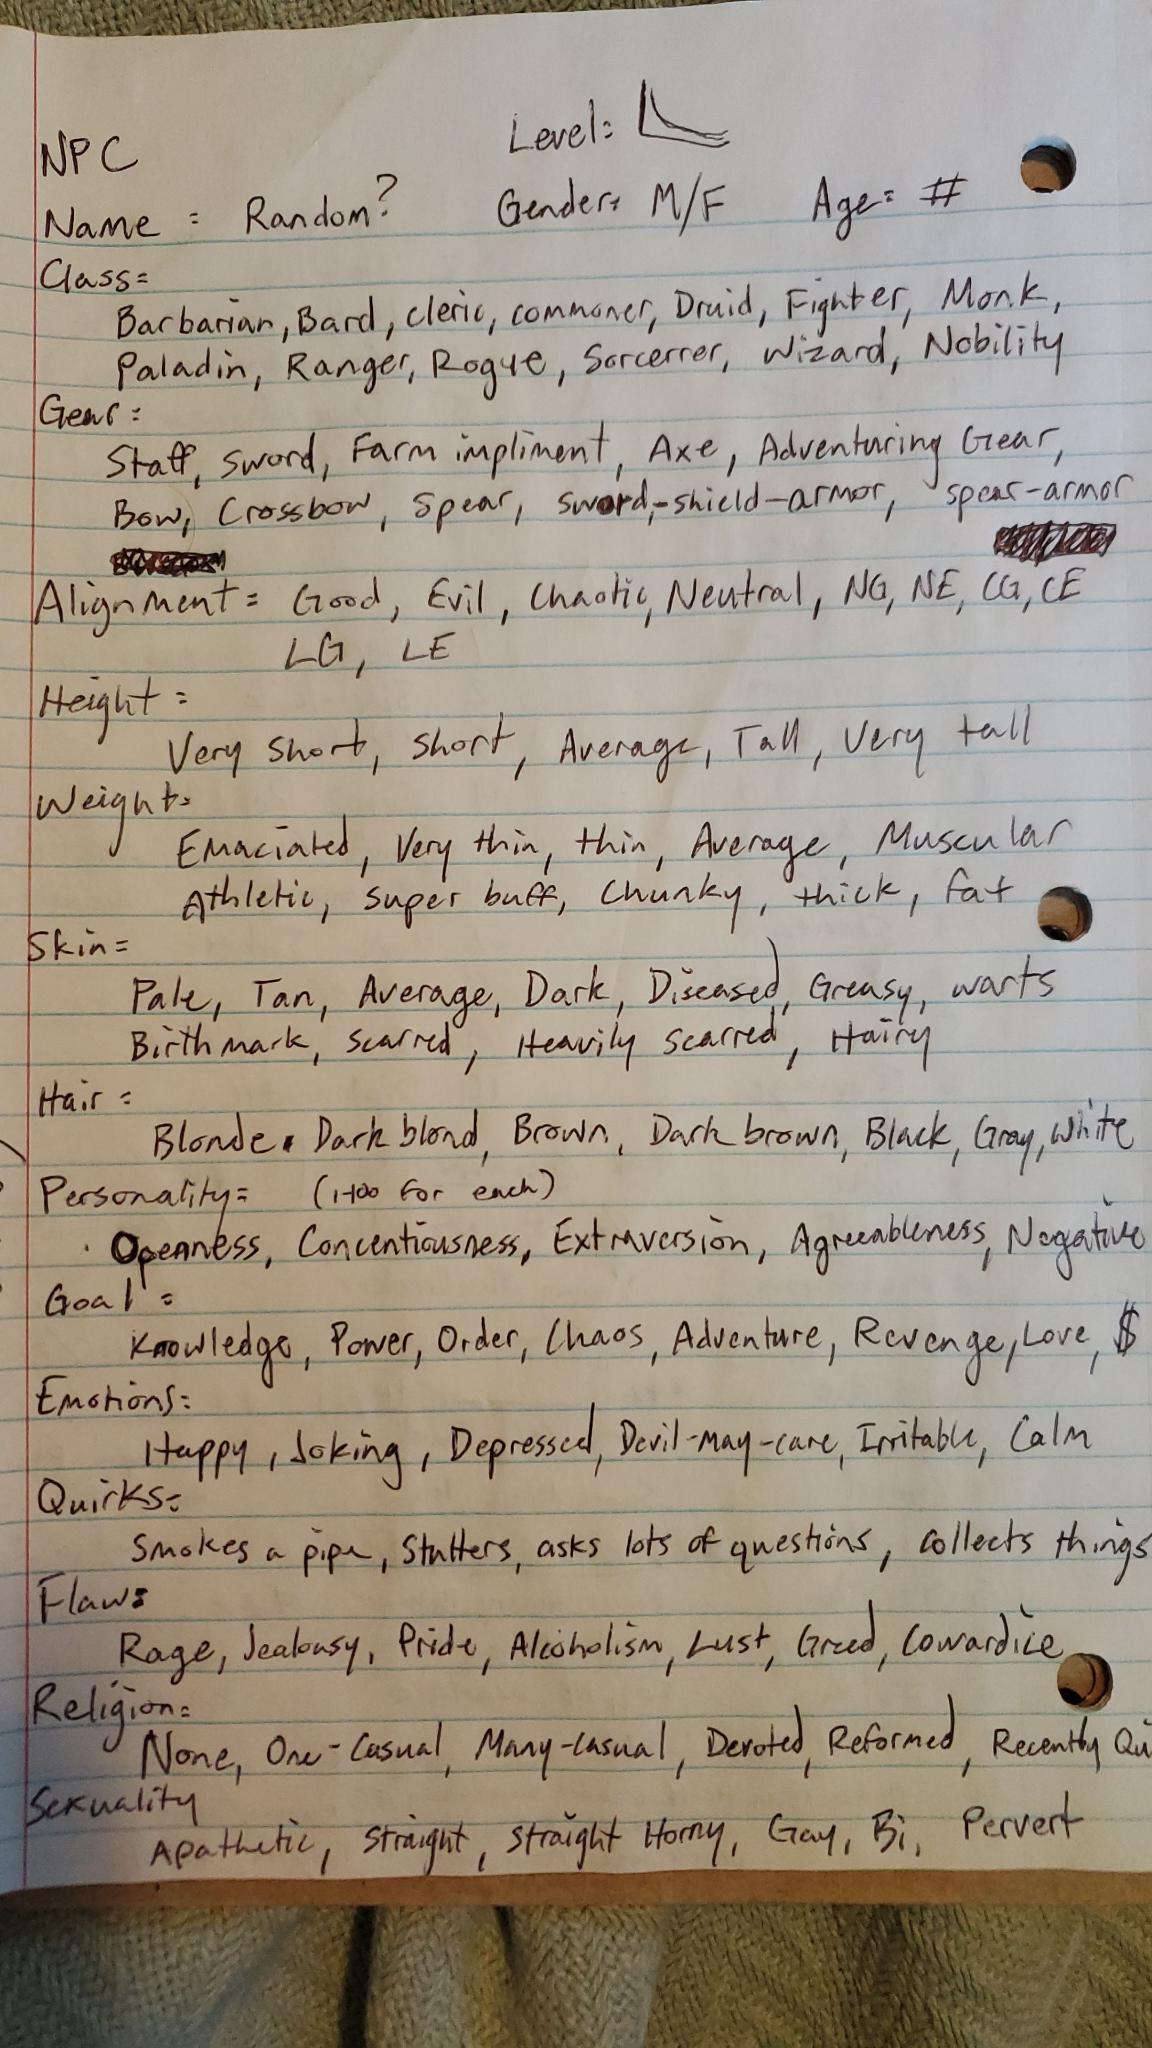 Level:
NPC
Name = Random? Gender: M/F Age= #
Class=
Barbarian, Bard, cleric, commoner, Druid, Fighter, Monk,
Paladin, Ranger, Rogue, Sorcerrer, Wizard, Nobility
Gear:
Staff, sword, Farm impliment, Axe, Adventuring Gear,
Bow, Crossbow, Spear, sword-shield-armor, spear-armor
Alignment= Good, Evil, Chaotic, Neutral, NG, NE, CG, CE
LG, LE
Height=
Very short, short, Average, Tall, Very tall
Weight=
Emaciated, Very thin, thin, Average, Muscular
Athletic, super buff, Chunky, thick, fat
Skin=
Pale, Tan, Average, Dark, Diseased, Greasy, warts
Birthmark, scarred, Heavily scarred, Hairy
Hair=
Blonde. Dark blond, Brown, Dark brown, Black, Gray, White
Personality= (1-100 for each)
Openness, Concentiousness, Extraversion, Agreeableness, Negative
Goal=
Knowledge, Power, Order, Chaos, Adventure, Revenge, Love, $
Emotions=
Happy, Joking, Depressed, Devil-may-care, Irritable, Calm
Quirks=
Smokes a pipe, Stutters, asks lots of questions, collects things
Flaw=
Rage, Jealousy, Pride, Alcoholism, Lust, Greed, Cowardice
Religion=
None, One-Casual, Many-casual, Devoted, Reformed, Recently Qu
Sexuality
Apathetic, Straight, straight Horny, Gay, Bi, Pervert